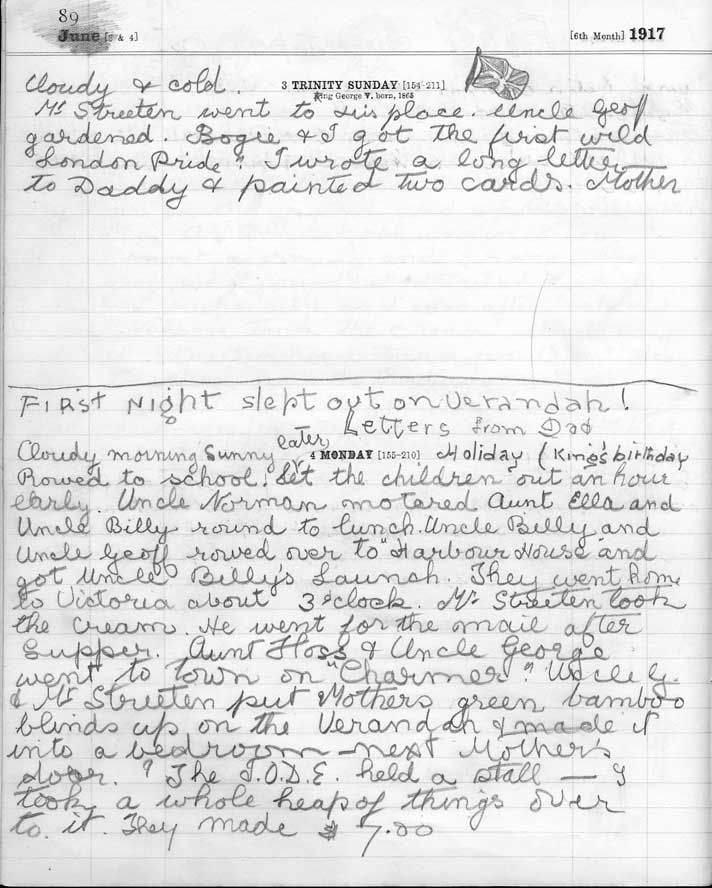 89
June [3 & 4] [6th Month] 1917
Cloudy & cold. 3 TRINITY SUNDAY [154-211]
King George V. born, 1865
Mr Streeten went to his place. Uncle Geof
gardened. Bogie & I got the first wild
London Pride? I wrote a long letter
to Daddy & painted two cards. Mother
FIRST Night slept out on Verandah!
Letters from Dad
Cloudy morning Sunny later 4 MONDAY [155-210] Holiday (King's birthday
Rowed to school. Let the children out an hour
early. Uncle Norman motored Aunt Ella and
Uncle Billy round to lunch. Uncle Billy and
Uncle Geoff rowed over to "Harbour House" and
got Uncle Billy's Launch. They went home
to Victoria about 3 o'clock. Mr Streeten took
the cream. He went for the mail after
supper. Aunt Floss & Uncle George
went to town on "Charmer"? Uncle G.
& Mr Streeten put Mothers green bamboo
blinds up on the Verandah & made it
into a bedroom - next Mother's
door. ? The I.O.D.E. held a stall — I
took a whole heap of things over
to it. They made $ 7.00